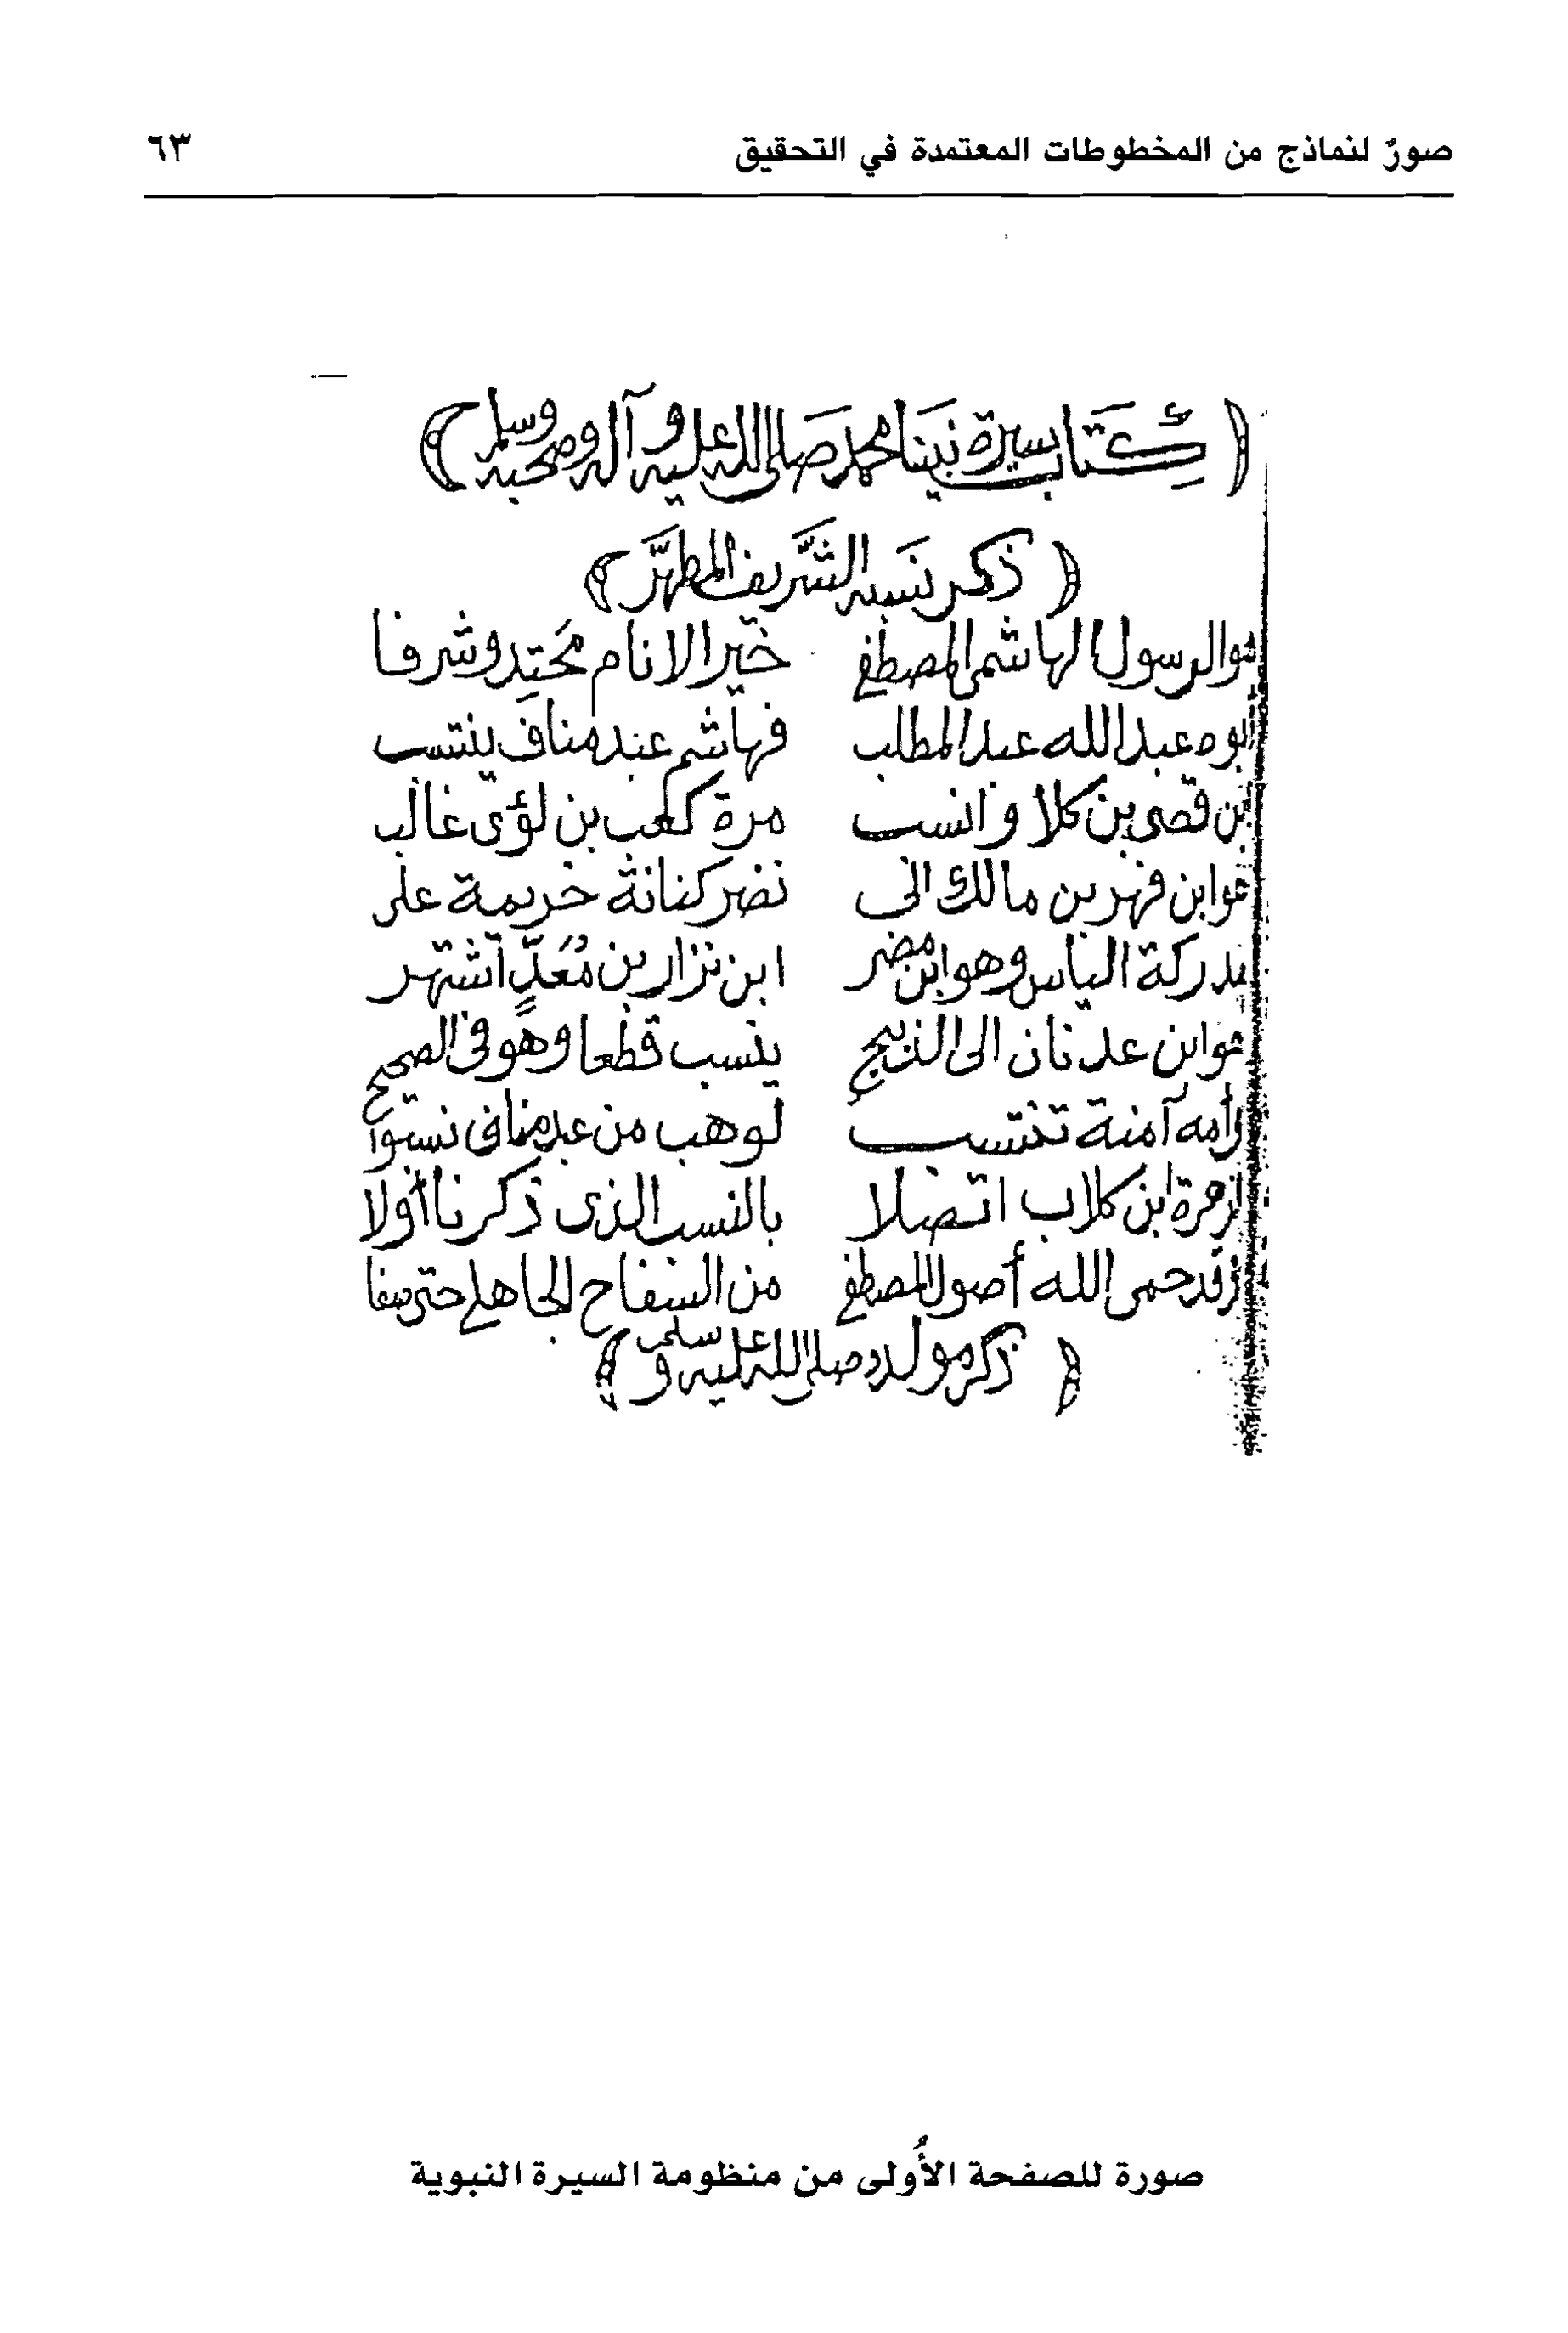 صورٌ لنماذج من المخطوطات المعتمدة في التحقيق ٦٣
﴿ كِتَاب سيرة نبينا محمد صلى الله عليه وآله وصحبه وسلم ﴾
﴿ ذكر نَسَبه الشَّريف المطهَّر ﴾
هو الرسول الهاشمى المصطفى خَيْر الانام مَحْتِد وشرفا
ابوه عبد الله عبد المطلب فهاشم عبد مناف ينتسب
بن قصى بن كلا وانسب مرة كعب بن لؤى غالب
هو ابن فهر بن مالك الى نضر كنانة خريمة على
مدركة الياس وهو ابن مضر ابن نزار بن مُعَدٍّ اشتهر
هو ابن عدنان الى الذبيح ينسب قطعا وهو فى الصحيح
وأمه آمنة تنتسب لوهب من عبد مناف نسبوا
زهرة ابن كلاب اتصلا بالنسب الذى ذكرنا أولا
وقد حمى الله أصول المصطفى من السفاح الجاهلى حتى
﴿ ذكر مولده صلى الله عليه وسلم ﴾
صورة للصفحة الأُولى من منظومة السيرة النبوية